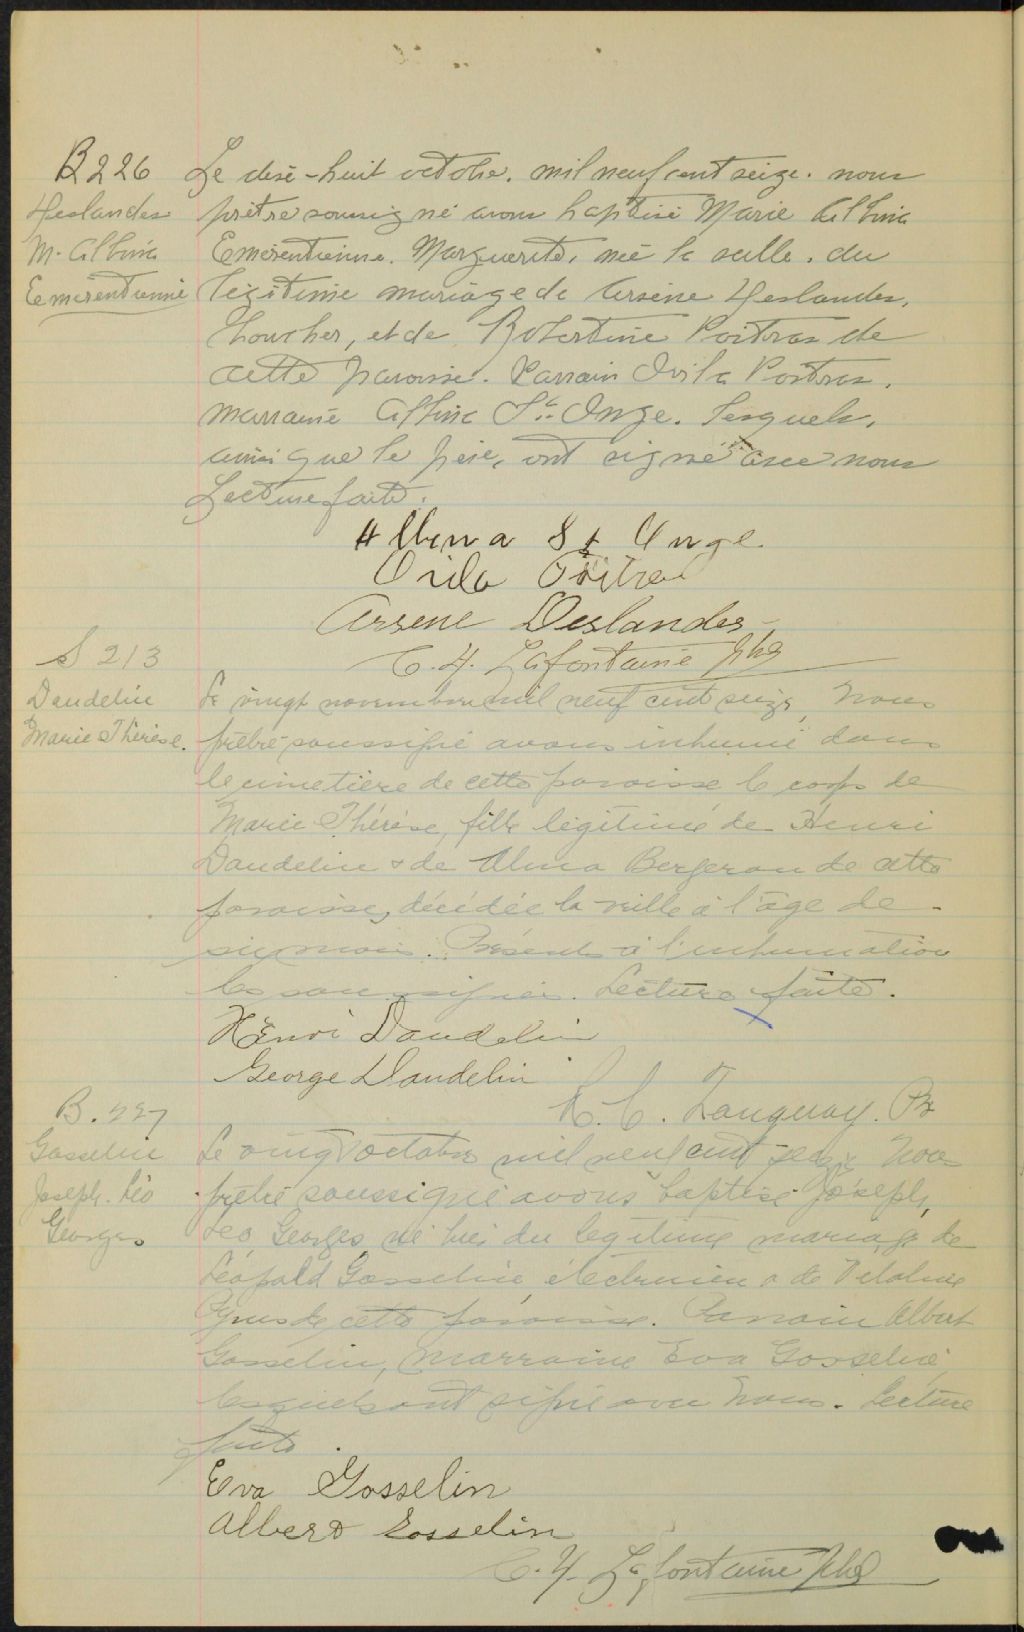 B226
Deslandes
M. Albina
Emérentienne
Le dixe-huit octobre. mil neuf cent seize. nous
prêtre soussigné avons baptisé Marie Albina
Emérentienne. Marguerite, née la veille. du
légitime mariage de Arsène Deslandes,
boucher, et de Robertine Poitras de
cette paroisse. Parrain Ovila Poitras.
marraine Albina St. Onge. lesquels,
ainsi que le père, ont signé avec nous
Lecture faite.
Albina St Onge
Ovila Poitras
Arsene Deslandes
C. H. Lafontaine ptre
S 213
Daudelin
Marie Thérèse.
Le vingt novembre mil neuf cent seize, Nous
prêtre soussigné avons inhumé dans
le cimetière de cette paroisse le corps de
Marie Thérèse, fille légitime de Henri
Daudelin & de Alma Bergeron de cette
paroisse, décédée la veille à l'âge de
six mois. Présents à l'inhumation
les soussignés. Lecture faite.
Henri Daudelin
George Daudelin
C. Tanguay. Ptr
B. 227
Gosselin
Joseph. Léo
Georges
Le vingt octobre mil neuf cent seize Nous
prêtre soussigné avons baptisé Joseph,
Léo, Georges, né hier du légitime mariage de
Léopold Gosselin, électricien & de
de cette paroisse. Parrain Albert
Gosselin, Marraine Eva Gosselin,
lesquels ont signé avec Nous. Lecture
faite.
Eva Gosselin
Albert Gosselin
C. H. Lafontaine ptre